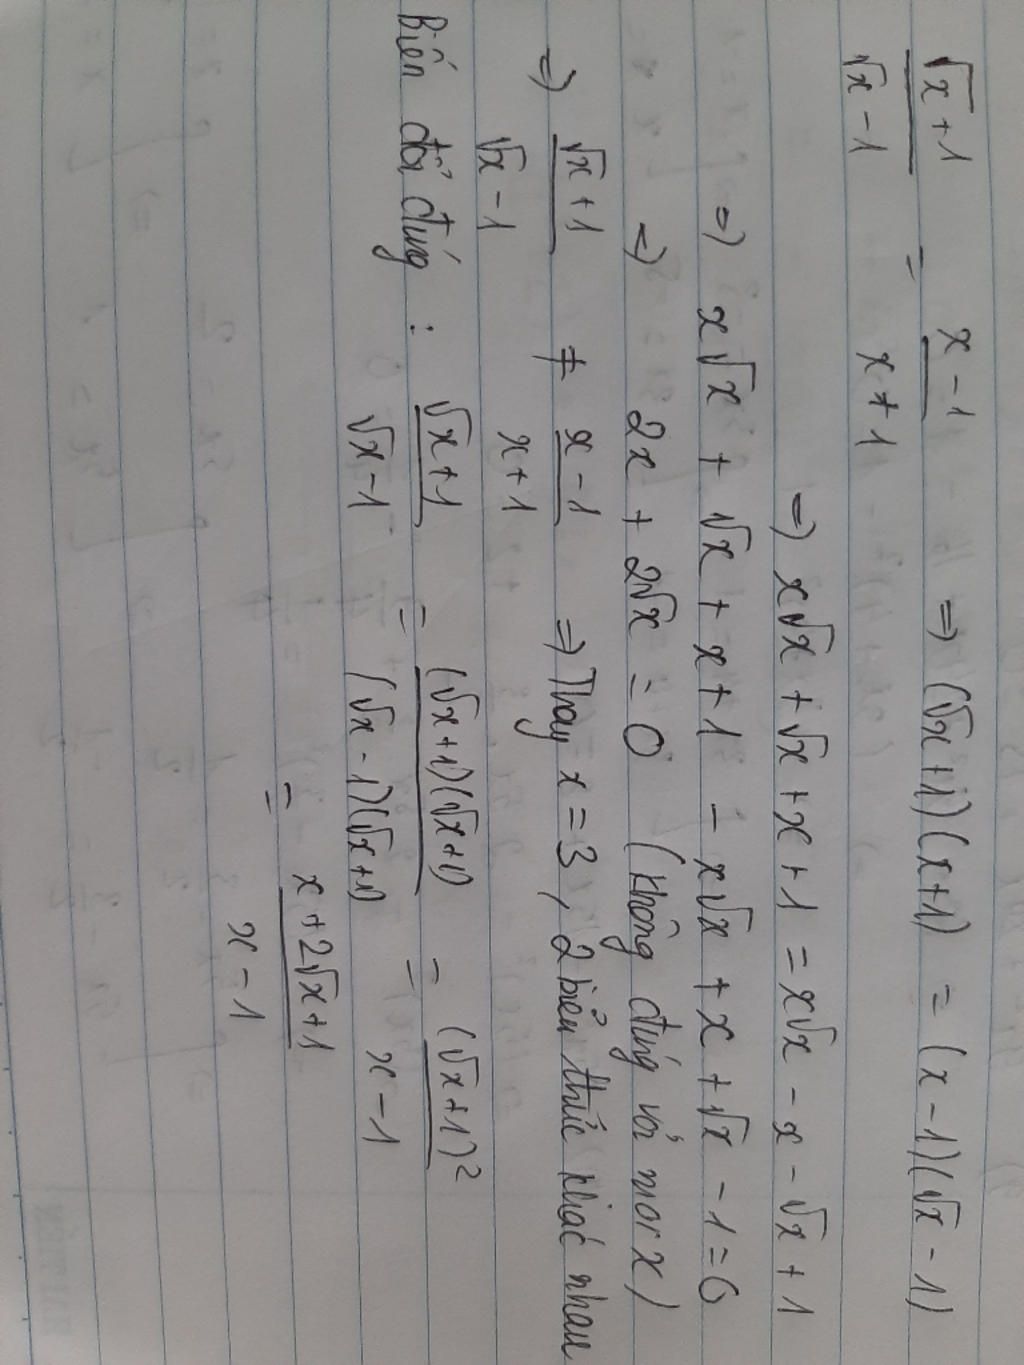 (√x + 1)/(√x - 1) = (x - 1)/(x + 1) => (√x + 1)(x + 1) = (x - 1)(√x - 1)
=> x√x + √x + x + 1 = x√x - x - √x + 1
=> x√x + √x + x + 1 - x√x + x + √x - 1 = 0
=> 2x + 2√x = 0 (không đúng với mọi x)
=> (√x + 1)/(√x - 1) ≠ (x - 1)/(x + 1) => Thay x = 3, 2 biểu thức khác nhau
Biến đổi đúng : (√x + 1)/(√x - 1) = (√x + 1)(√x + 1)/(√x - 1)(√x + 1) = (√x + 1)²/(x - 1)
= (x + 2√x + 1)/(x - 1)